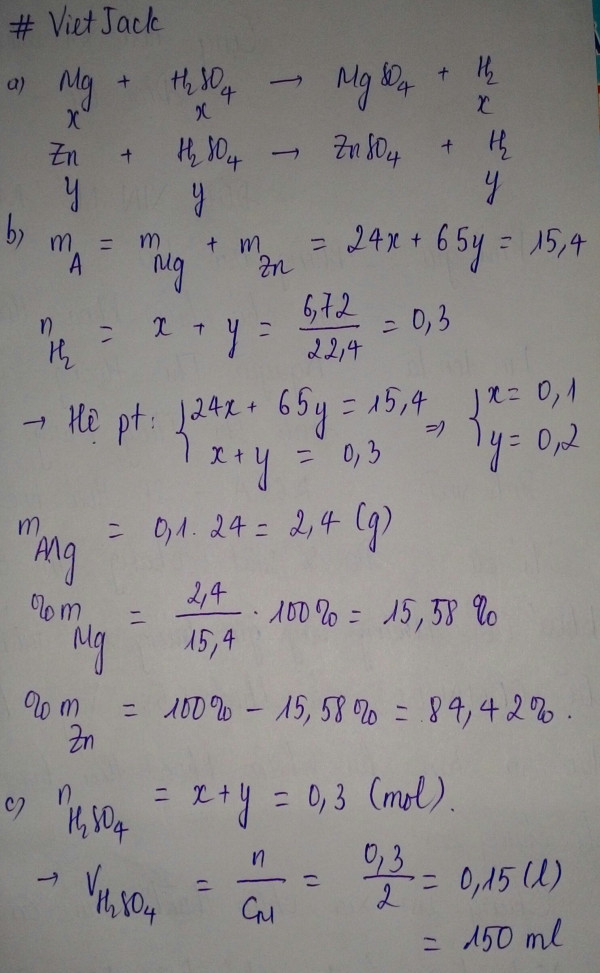 # VietJack
a) Mg + H₂SO₄ → MgSO₄ + H₂
x x x
Zn + H₂SO₄ → ZnSO₄ + H₂
y y y
b) m_A = m_Mg + m_Zn = 24x + 65y = 15,4
n_H₂ = x + y = 6,72/22,4 = 0,3
→ Hệ pt: { 24x + 65y = 15,4 ⇒ { x = 0,1
x + y = 0,3 y = 0,2
m_Mg = 0,1. 24 = 2,4 (g)
%m_Mg = 2,4/15,4 . 100% = 15,58 %
%m_Zn = 100% - 15,58% = 84,42%.
c) n_H₂SO₄ = x + y = 0,3 (mol).
→ V_H₂SO₄ = n/C_M = 0,3/2 = 0,15 (l)
= 150 ml